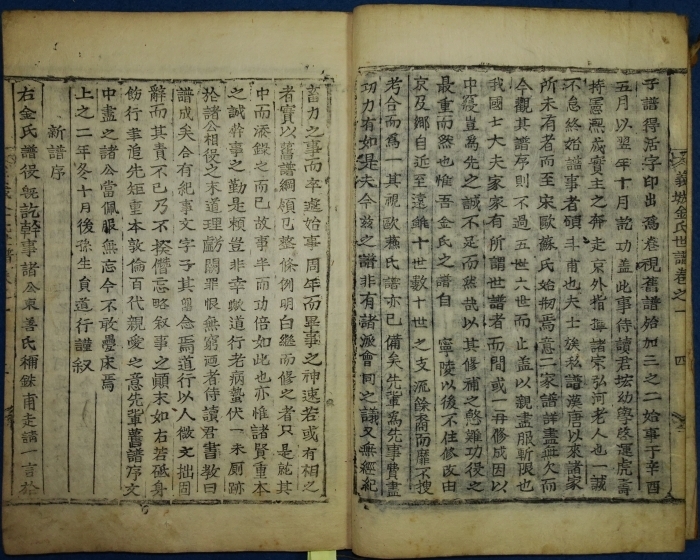 子譜得活字印出爲卷視舊譜殆加三之二始事于辛酉
五月以翌年十月訖功盖此事待讀君坮幼學啓運虎壽
持憲熙成實主之奔走京外指導諸宗弘河老人也一誠
不怠終始譜事者碩斗甫也夫士族私譜漢唐以來諸家
所未有者而至宋歐蘇氏始刱焉意二家譜詳盡無欠而
今觀其譜序則不過五世六世而止盖以親盡服斬限也
我國士大夫家家有所謂世譜者而間或一再修成因以
中寢豈爲先之誠不足而然哉以其修補之慇難功役之
最重而然也惟吾金氏之譜自
寧陵以後不住修改由
京及鄕自近至遠雖十世數十世之支流餘裔而靡不搜
考合而爲一其視歐蘇氏譜亦已備矣先輩爲先事費盡
切力有如是夫今玆之譜非有諸派會同之議又無經紀
義城金氏世譜卷之一 四
蓄力之事而卒遽始事周年而畢事之神速若或有相之
者實以舊譜綱領已整條例明白繼而修之者只是就其
中而添錄之而已故事半而功倍如此也亦惟諸賢重本
之誠幹事之勤是賴豈非幸歟道行老病蟄伏一未厠跡
於諸公相役之末道理虧闕罪恨無窮迺者侍讀君書敎曰
譜成矣合有紀事文字子其圖念焉道行以人微文拙固
辭而其責不已乃不揆僭忘略叙事之顚末如右若砥身
飭行聿追先矩重本敦倫百代親愛之意先輩舊譜序文
中盡之諸公當佩服無忘今不敢疊床焉
上之二年冬十月後孫生員道行謹叙
新譜序
右金氏譜役旣訖幹事諸公東善氏稱錄甫走請一言於